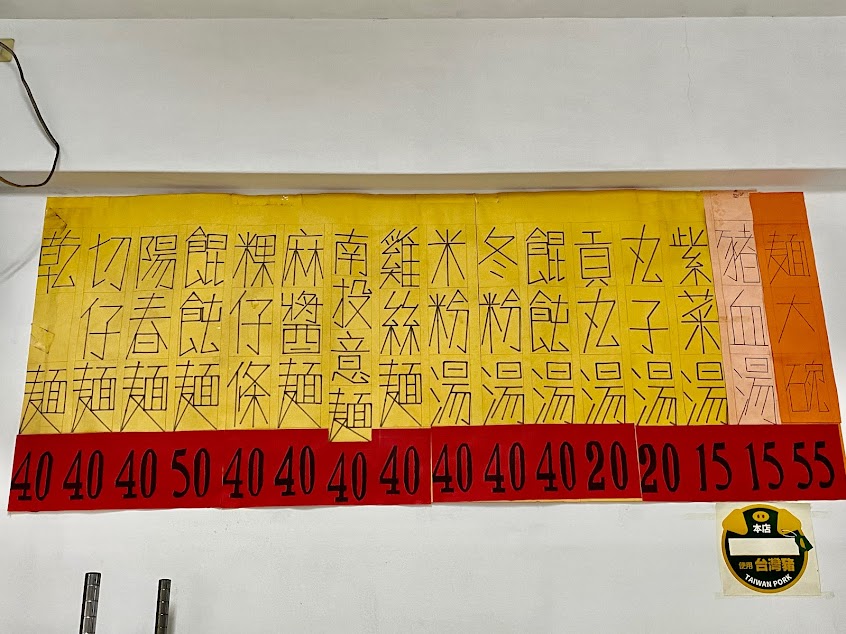 乾麵
切仔麵
陽春麵
餛飩麵
粿仔條
麻醬麵
南投意麵
雞絲麵
米粉湯
冬粉湯
餛飩湯
貢丸湯
丸子湯
紫菜湯
豬血湯
麵大碗
40 40 40 50 40 40 40 40 40 40 40 20 20 15 15 55
本店
使用 台灣豬
TAIWAN PORK